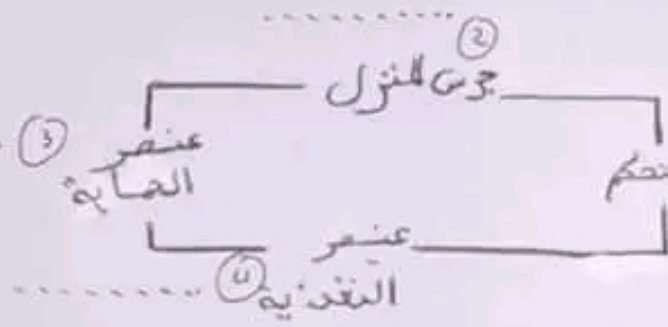 ②
جرس المنزل
③ عنصر
الحماية
تحكم
عنصر
④ التغذية